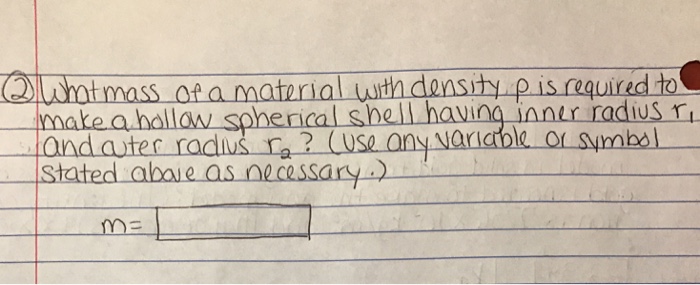 ② What mass of a material with density ρ is required to
make a hollow spherical shell having inner radius r₁
and outer radius r₂? (Use any variable or symbol
stated above as necessary.)
m=